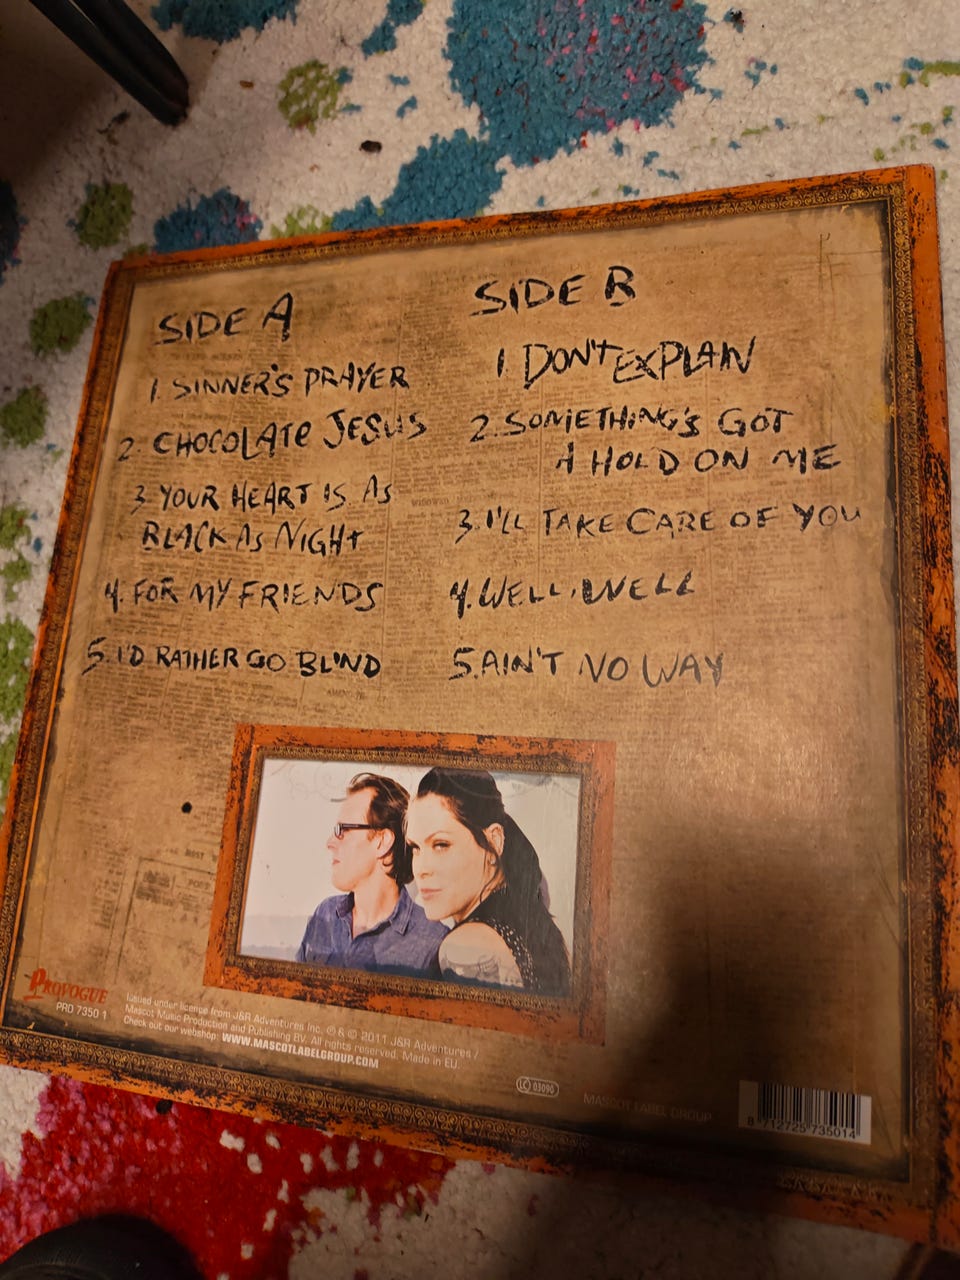 SIDE A
1. SINNER'S PRAYER
2. CHOCOLATE JESUS
3. YOUR HEART IS AS
BLACK AS NIGHT
4. FOR MY FRIENDS
5. I'D RATHER GO BLIND
SIDE B
1. DON'T EXPLAIN
2. SOMETHING'S GOT
A HOLD ON ME
3. I'LL TAKE CARE OF YOU
4. WELL, WELL
5. AIN'T NO WAY
PROVOGUE
PRD 7350 1
Issued under license from J&R Adventures Inc. ℗ & © 2011 J&R Adventures /
Mascot Music Production and Publishing BV. All rights reserved. Made in EU.
Check out our webshop: WWW.MASCOTLABELGROUP.COM
LC 03090
MASCOT LABEL GROUP
8 712725 735014